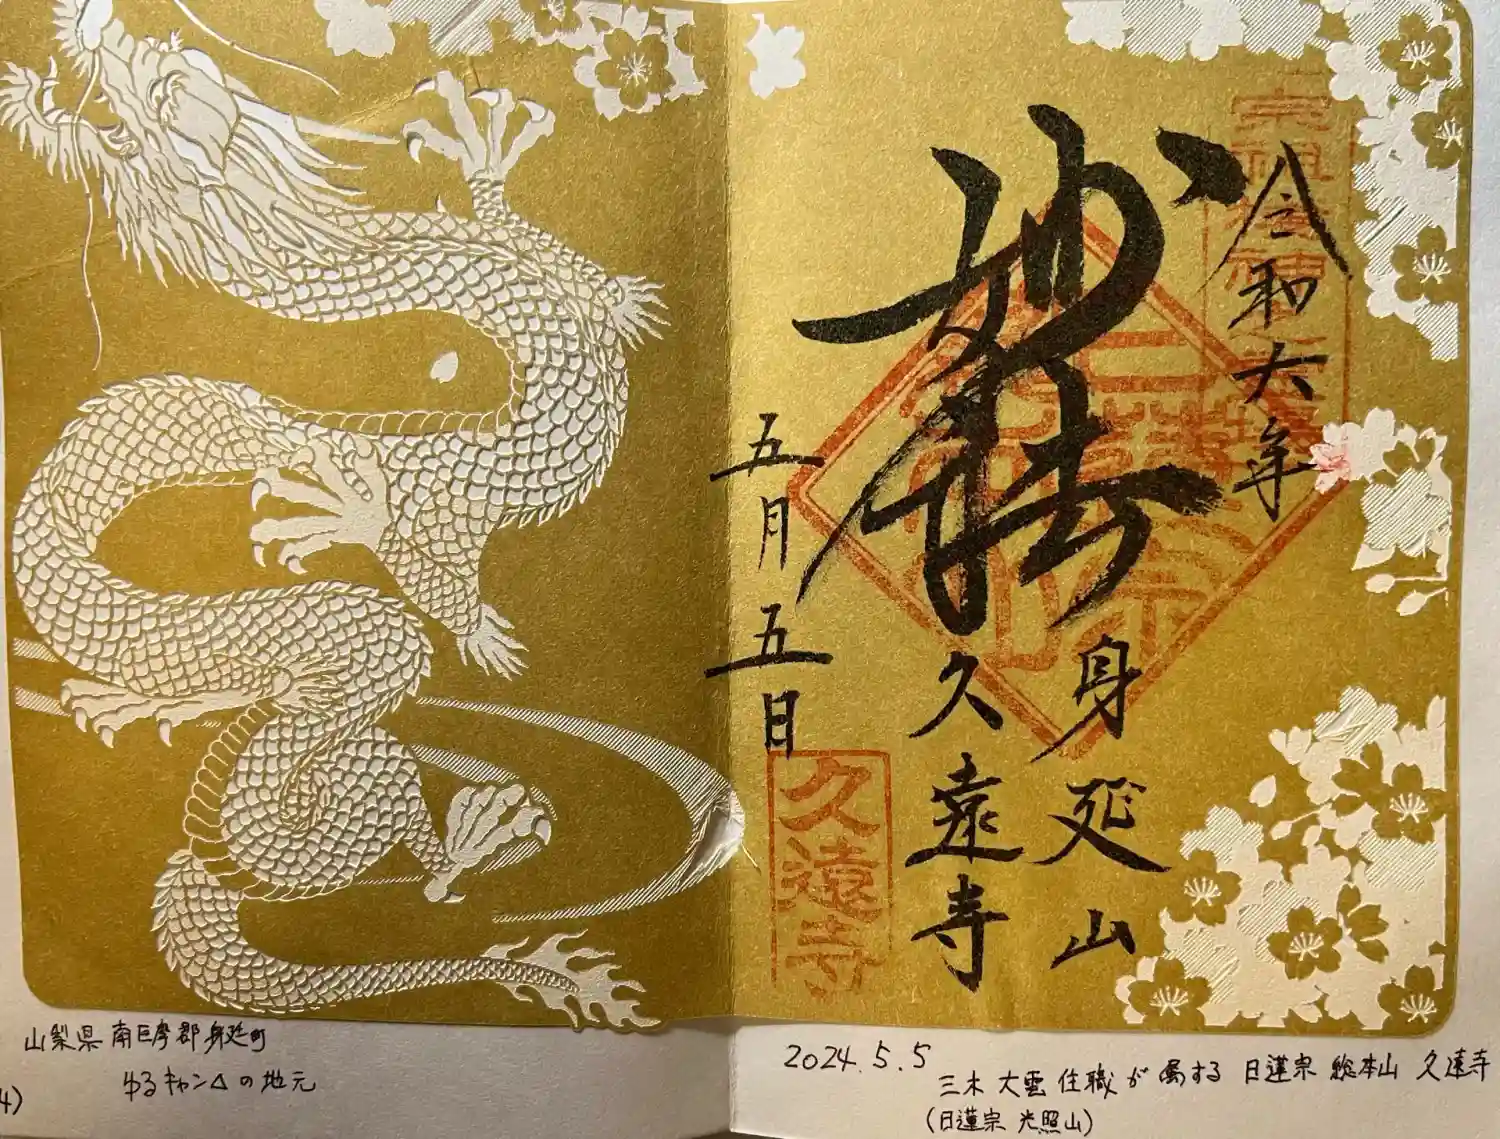 令和六年
妙法
身延山
久遠寺
五月五日
久遠寺
山梨県 南巨摩郡 身延町
ゆるキャン△の地元
4)
2024.5.5
三木 大雲 住職 が 属する 日蓮宗 総本山 久遠寺
(日蓮宗 光照山)